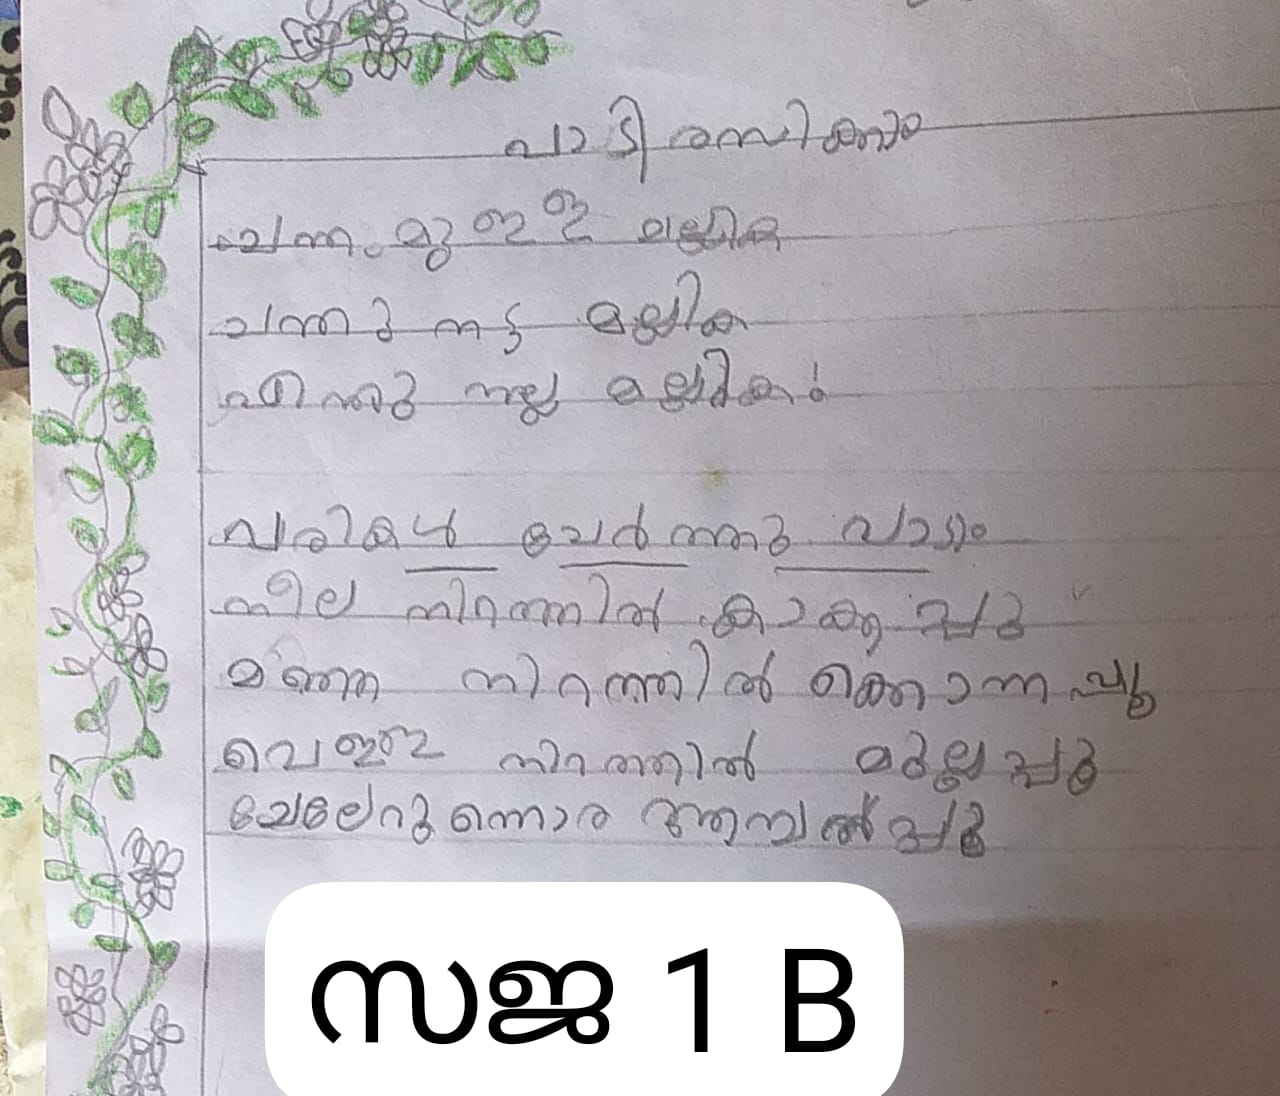 പാടി രസിക്കാം
ചന്തമുള്ള മല്ലിക
ചന്തു നട്ട മല്ലിക
എന്തു നല്ല മല്ലിക!
വരികൾ ചേർത്തു പാടാം
നീല നിറത്തിൽ കാക്കപ്പൂ
മഞ്ഞ നിറത്തിൽ കൊന്നപ്പൂ
വെള്ള നിറത്തിൽ മുല്ലപ്പൂ
ചേലേറുന്നൊര ആമ്പൽപ്പൂ
സജ 1 B